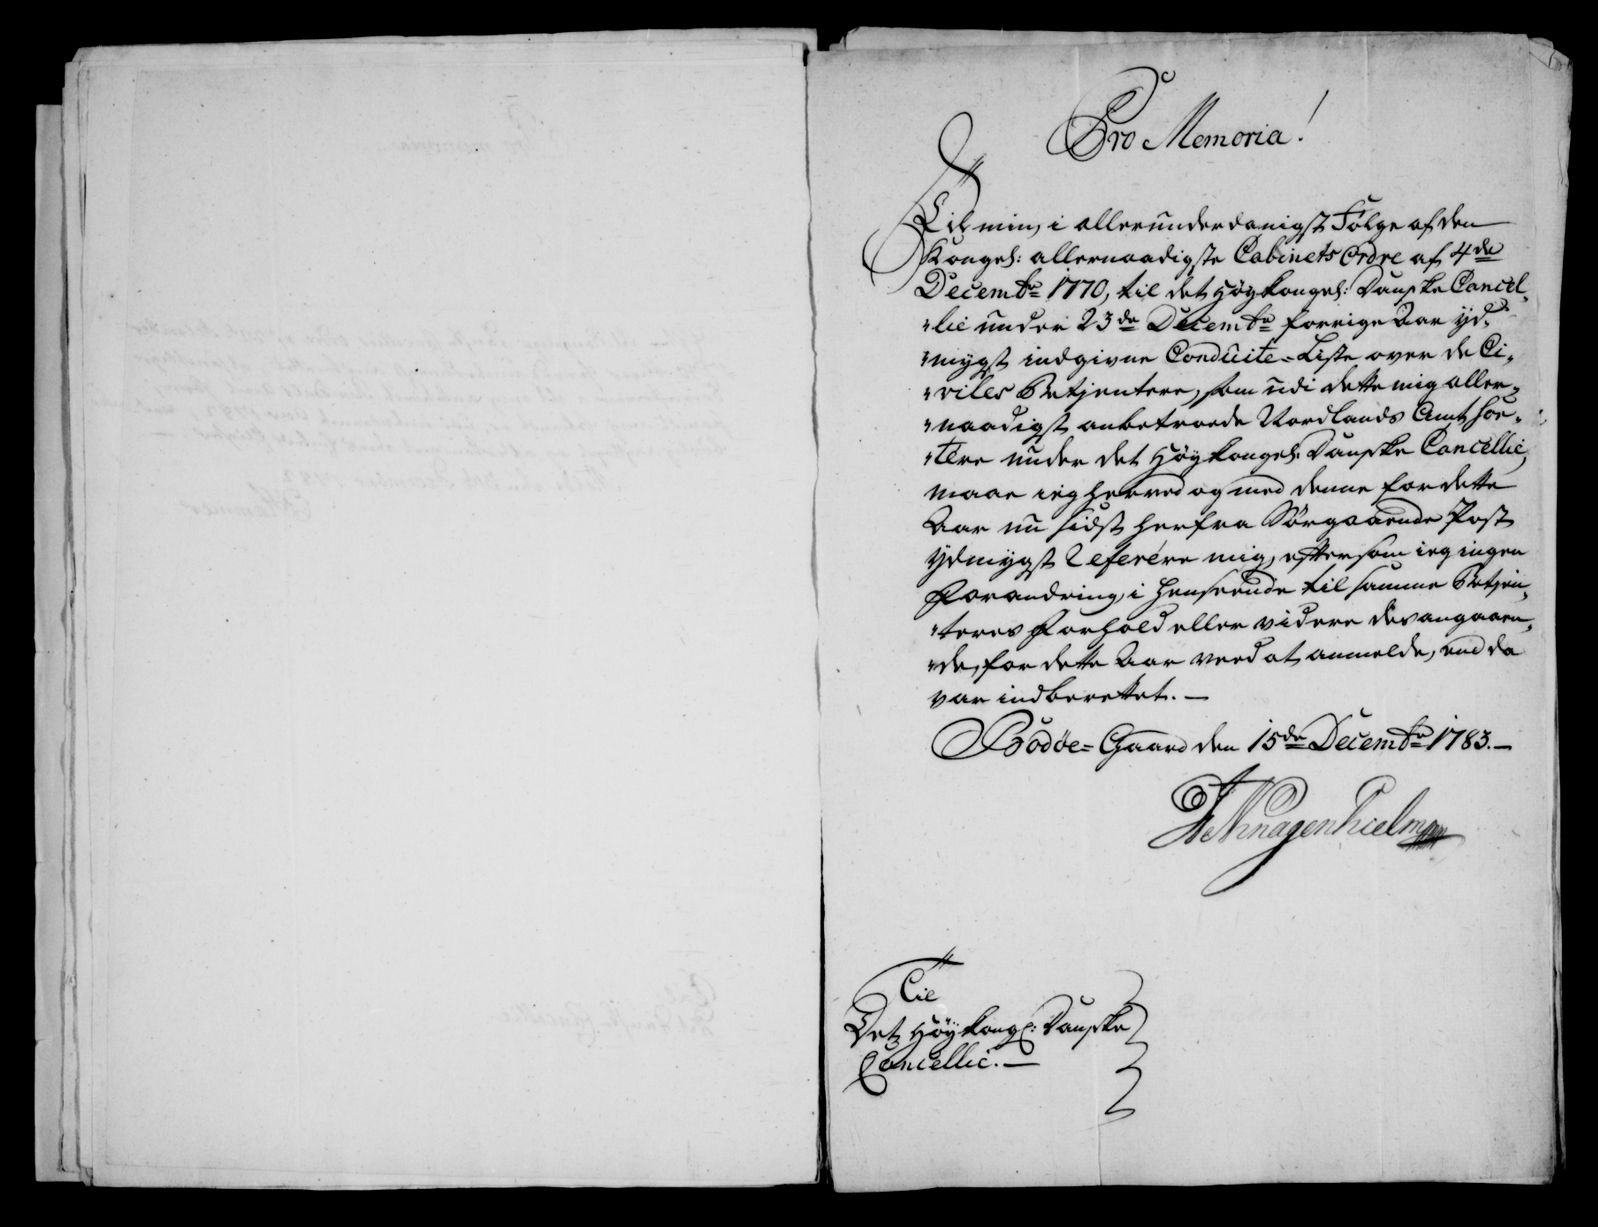 Pro Memoria!
Til min, i allerunderdanigst Følge af den
Kongel: allernaadigste Cabinets Ordre af 4de
Decembr 1770, til det Høykongel: Danske Cancel-
lie under 23de Decembr forrige Aar yd-
mygst indgivne Conduite-Liste over de Ci-
viles Betjentere, som udi dette mig aller-
naadigst anbetroede Nordlands Amt sor-
tére under det Høykongel: Danske Cancellie,
maae ieg herved og med denne for dette
Aar nu sidst herfra Sørgaaende Post
ydmygst referére mig, eftersom ieg ingen
Forandring, i henseende til samme Betjen-
teres Forhold eller videre desangaaen-
de, for dette Aar veed at anmelde, end da
var indberettet.—
Bodøe-Gaard den 15de Decembr 1783.—
Til
Det Høykongl: Danske
Cancellie.—